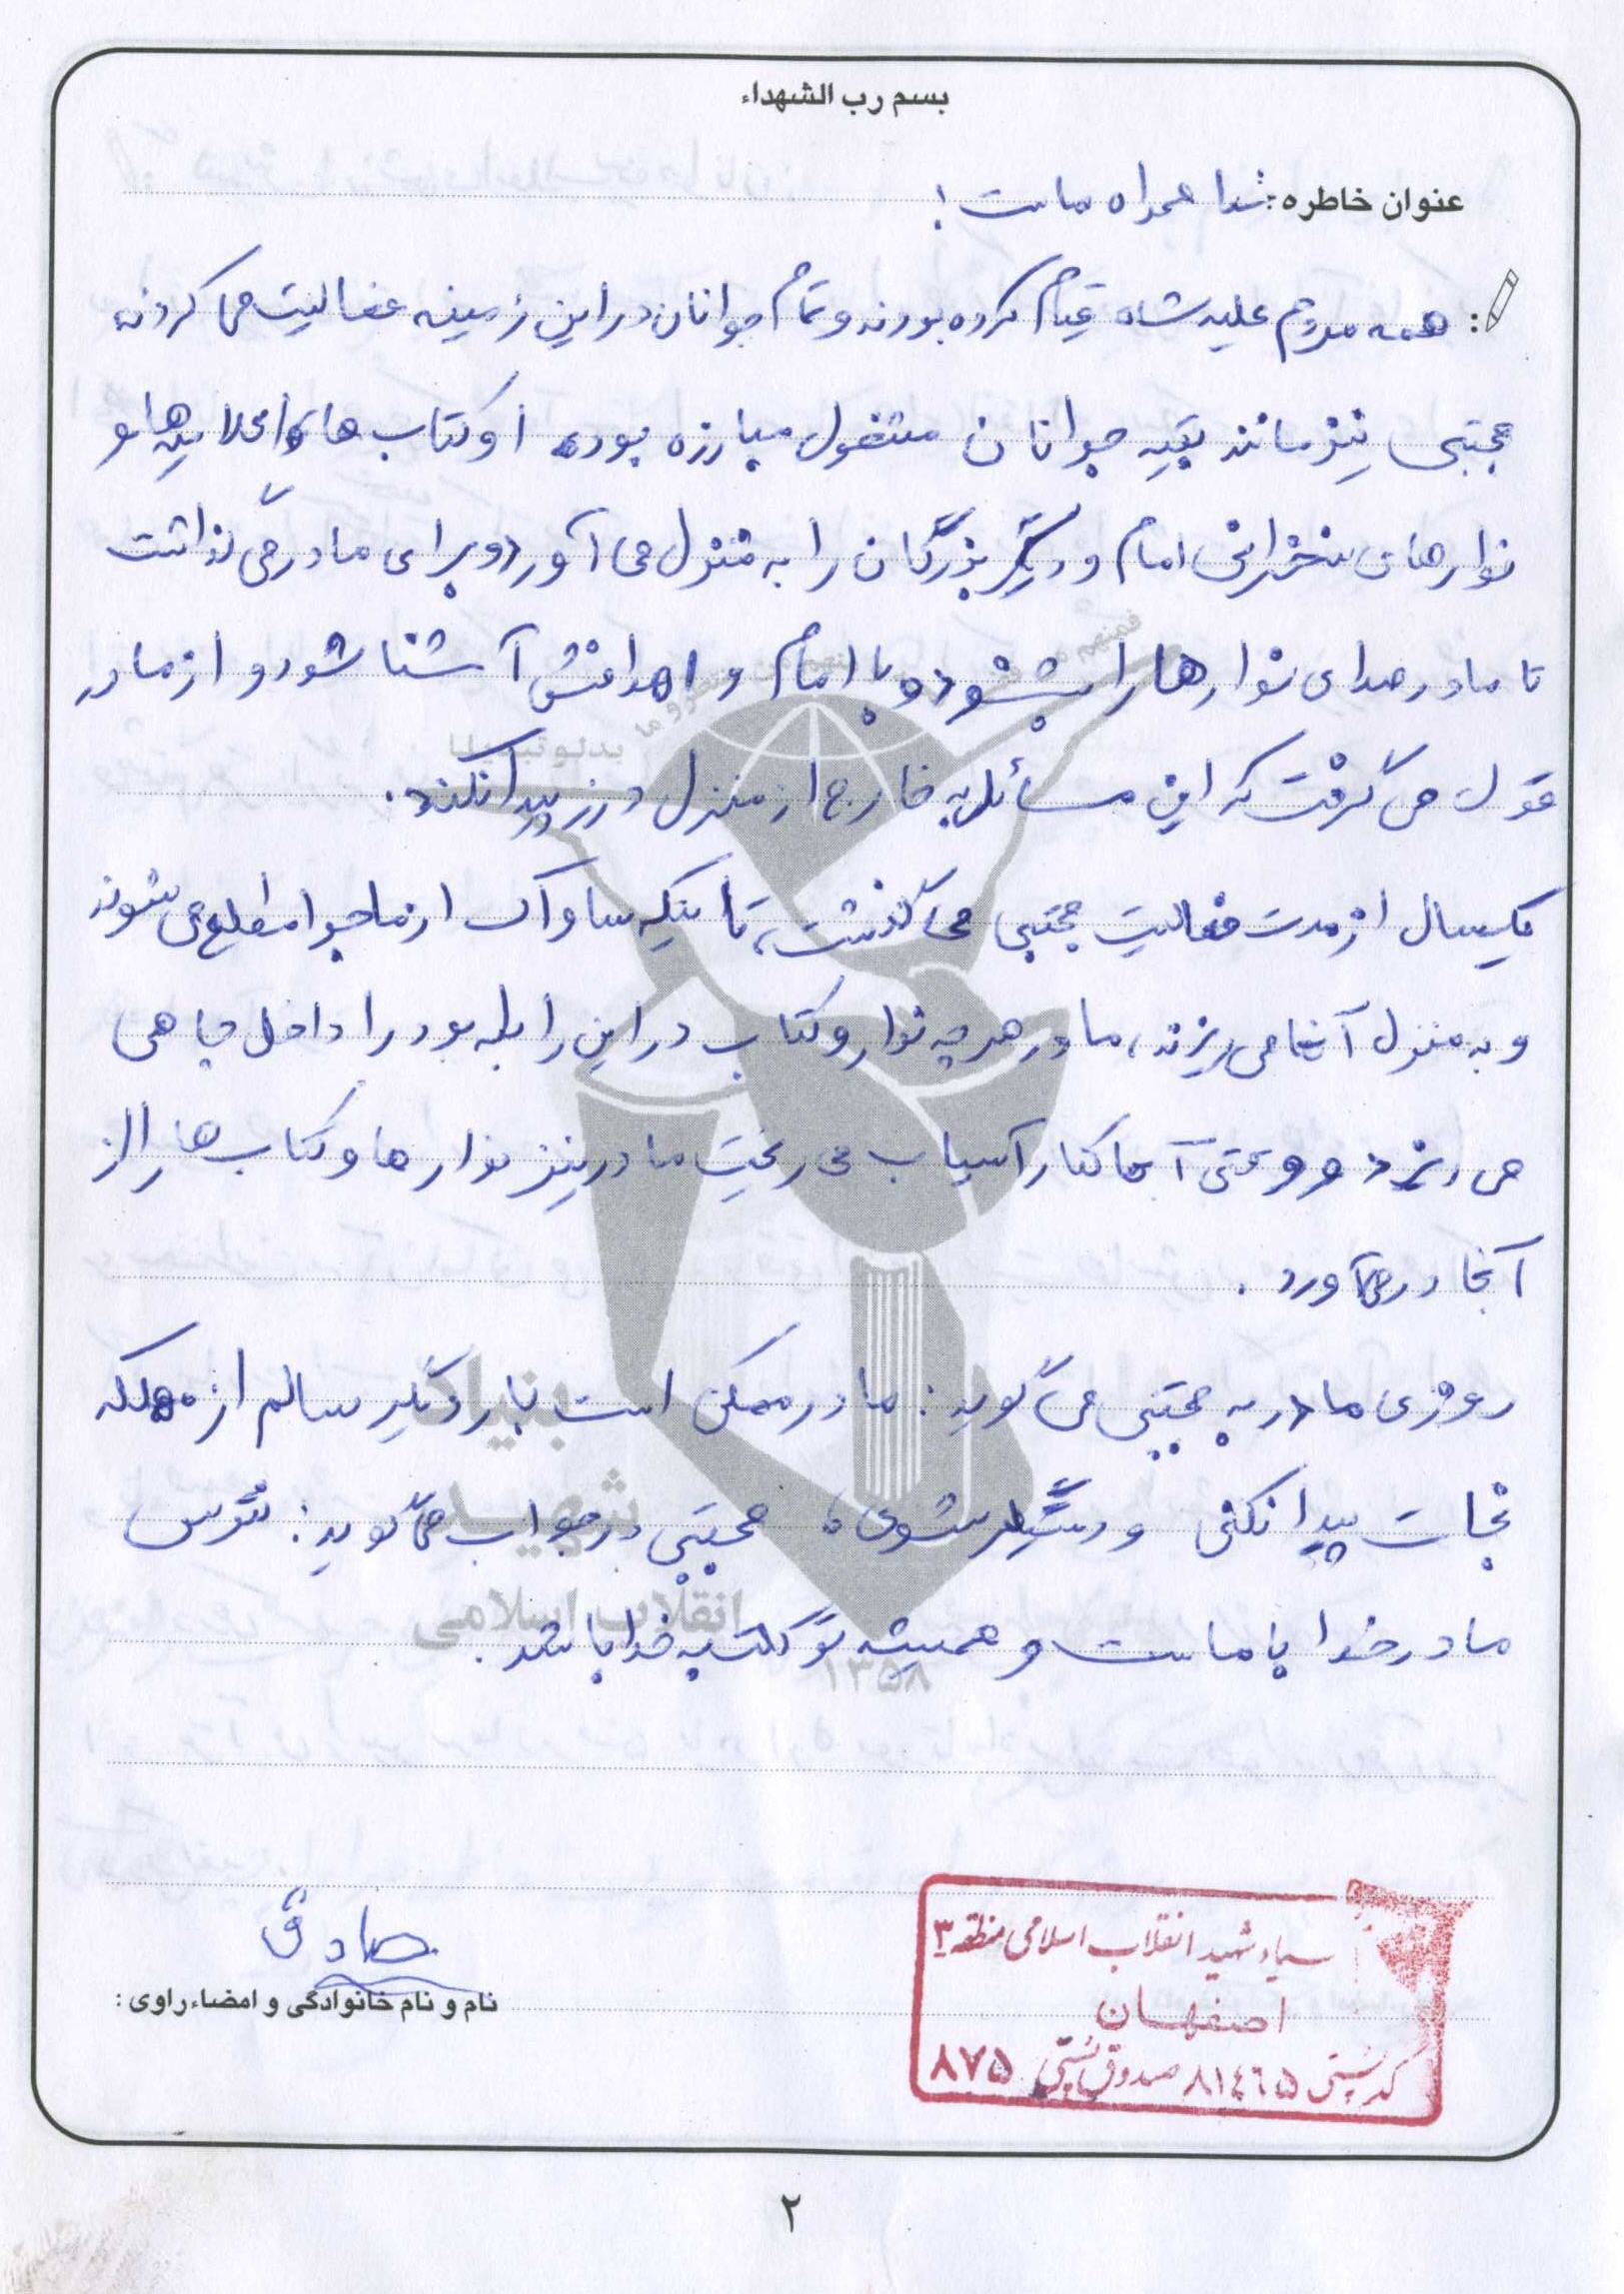 بسم رب الشهداء
عنوان خاطره: خدا همراه ماست!
: همه مردم علیه شاه قیام کرده بودند و تمام جوانان در این زمینه فعالیت می کردند
مجتبی نیز مانند بقیه جوانان مشغول مبارزه بود. او کتاب ها و اعلامیه ها و
نوارهای سخنرانی امام و دیگر بزرگان را به منزل می آورد و برای مادر می گذاشت
تا مادر صدای نوارها را بشنود و با امام و اهدافش آشنا شود و از مادر
قول می گرفت که این مسائل به خارج از منزل درز پیدا نکند.
یکسال از مدت فعالیت مجتبی می گذشت، تا اینکه ساواک از ماجرا مطلع می شوند
و به منزل آنها می ریزند، مادر هر چه نوار و کتاب در این رابطه بود را داخل چاهی
می ریزد و وقتی آنجا کنار آسیاب می ریخت مادر نیز نوارها و کتاب ها را از
آنجا در می آورد.
روزی مادر به مجتبی می گوید: مادر ممکن است بار دیگر سالم از مهلکه
نجات پیدا نکنی و دستگیر بشوی، مجتبی در جواب می گوید: نترس
مادر خدا با ماست و همیشه توکلت به خدا باشد.
بنیاد
شهید
انقلاب اسلامی
۱۳۵۸
صادقی
نام و نام خانوادگی و امضاء راوی:
بنیاد شهید انقلاب اسلامی منطقه ۳
اصفهان
کد پستی ۸۱۴۶۵ صندوق پستی ۸۷۵
۲